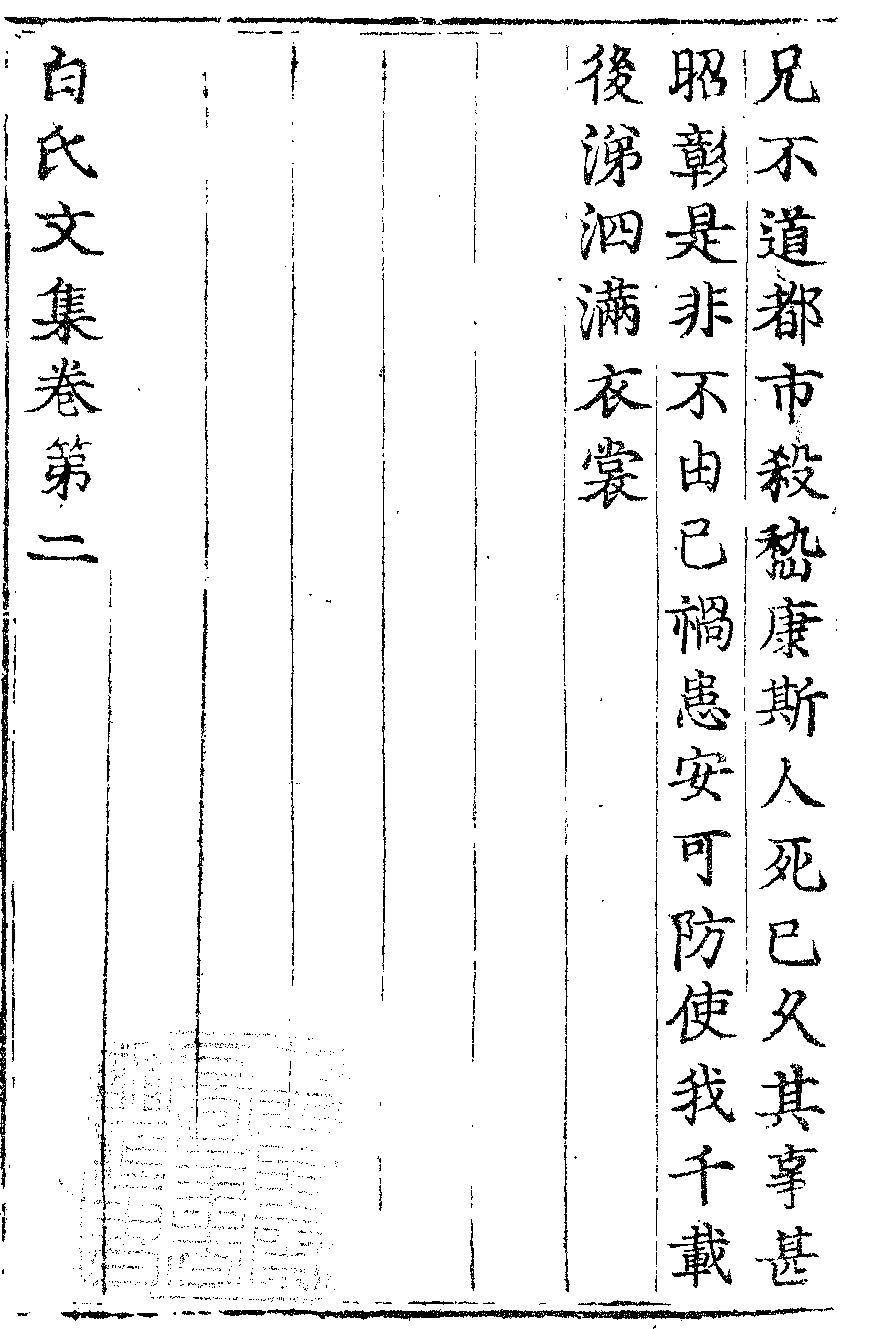 兄不道都市殺嵇康斯人死已久其事甚
昭彰是非不由已禍患安可防使我千載
後涕泗滿衣裳
白氏文集卷第二